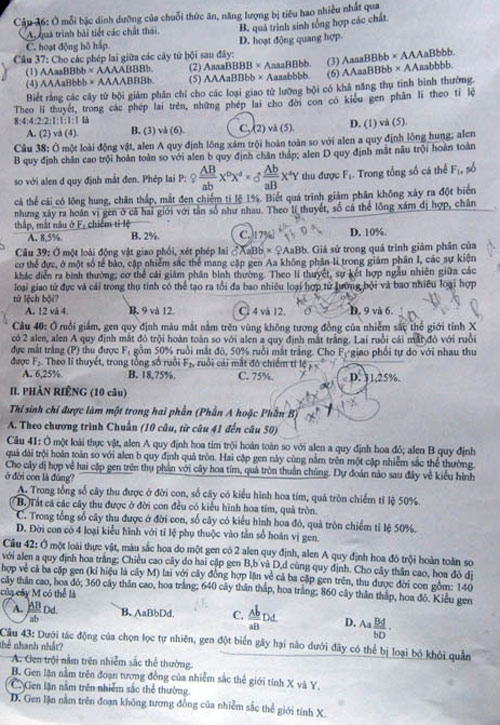 Câu 36: Ở mỗi bậc dinh dưỡng của chuỗi thức ăn, năng lượng bị tiêu hao nhiều nhất qua
A. quá trình bài tiết các chất thải. B. quá trình sinh tổng hợp các chất.
C. hoạt động hô hấp. D. hoạt động quang hợp.
Câu 37: Cho các phép lai giữa các cây tứ bội sau đây:
(1) AAaaBBbb × AAAABBBb. (2) AaaaBBBB × AaaaBBbb. (3) AaaaBBbb × AAAaBbbb.
(4) AAAaBbbb × AAAABBBb. (5) AAAaBBbb × Aaaabbbb. (6) AAaaBBbb × AAaabbbb.
Biết rằng các cây tứ bội giảm phân chỉ cho các loại giao tử lưỡng bội có khả năng thụ tinh bình thường.
Theo lí thuyết, trong các phép lai trên, những phép lai cho đời con có kiểu gen phân li theo tỉ lệ
8:4:4:2:2:1:1:1:1 là
A. (2) và (4). B. (3) và (6). C. (2) và (5). D. (1) và (5).
Câu 38: Ở một loài động vật, alen A quy định lông xám trội hoàn toàn so với alen a quy định lông hung; alen
B quy định chân cao trội hoàn toàn so với alen b quy định chân thấp; alen D quy định mắt nâu trội hoàn toàn
so với alen d quy định mắt đen. Phép lai P: ♀ AB/ab X^D X^d × ♂ Ab/aB X^d Y thu được F₁. Trong tổng số cá thể F₁, số
cá thể cái có lông hung, chân thấp, mắt đen chiếm tỉ lệ 1%. Biết quá trình giảm phân không xảy ra đột biến
nhưng xảy ra hoán vị gen ở cả hai giới với tần số như nhau. Theo lí thuyết, số cá thể lông xám dị hợp, chân
thấp, mắt nâu ở F₁ chiếm tỉ lệ
A. 8,5%. B. 2%. C. 17%. D. 10%.
Câu 39: Ở một loài động vật giao phối, xét phép lai ♂ AaBb × ♀ AaBb. Giả sử trong quá trình giảm phân của
cơ thể đực, ở một số tế bào, cặp nhiễm sắc thể mang cặp gen Aa không phân li trong giảm phân I, các sự kiện
khác diễn ra bình thường; cơ thể cái giảm phân bình thường. Theo lí thuyết, sự kết hợp ngẫu nhiên giữa các
loại giao tử đực và cái trong thụ tinh có thể tạo ra tối đa bao nhiêu loại hợp tử lưỡng bội và bao nhiêu loại hợp
tử lệch bội?
A. 12 và 4. B. 9 và 12. C. 4 và 12. D. 9 và 6.
Câu 40: Ở ruồi giấm, gen quy định màu mắt nằm trên vùng không tương đồng của nhiễm sắc thể giới tính X
có 2 alen, alen A quy định mắt đỏ trội hoàn toàn so với alen a quy định mắt trắng. Lai ruồi cái mắt đỏ với ruồi
đực mắt trắng (P) thu được F₁ gồm 50% ruồi mắt đỏ, 50% ruồi mắt trắng. Cho F₁ giao phối tự do với nhau thu
được F₂. Theo lí thuyết, trong tổng số ruồi F₂, ruồi cái mắt đỏ chiếm tỉ lệ
A. 6,25%. B. 18,75%. C. 75%. D. 31,25%.
II. PHẦN RIÊNG (10 câu)
Thí sinh chỉ được làm một trong hai phần (Phần A hoặc Phần B)
A. Theo chương trình Chuẩn (10 câu, từ câu 41 đến câu 50)
Câu 41: Ở một loài thực vật, alen A quy định hoa tím trội hoàn toàn so với alen a quy định hoa đỏ; alen B quy định
quả dài trội hoàn toàn so với alen b quy định quả tròn. Hai cặp gen này cùng nằm trên một cặp nhiễm sắc thể thường.
Cho cây dị hợp về hai cặp gen trên thụ phấn với cây hoa tím, quả tròn thuần chủng. Dự đoán nào sau đây về kiểu hình
ở đời con là đúng?
A. Trong tổng số cây thu được ở đời con, số cây có kiểu hình hoa tím, quả tròn chiếm tỉ lệ 50%.
B. Tất cả các cây thu được ở đời con đều có kiểu hình hoa tím, quả tròn.
C. Trong tổng số cây thu được ở đời con, số cây có kiểu hình hoa đỏ, quả tròn chiếm tỉ lệ 50%.
D. Đời con có 4 loại kiểu hình với tỉ lệ phụ thuộc vào tần số hoán vị gen.
Câu 42: Ở một loài thực vật, màu sắc hoa do một gen có 2 alen quy định, alen A quy định hoa đỏ trội hoàn toàn so
với alen a quy định hoa trắng; Chiều cao cây do hai cặp gen B,b và D,d cùng quy định. Cho cây thân cao, hoa đỏ dị
hợp về cả ba cặp gen (kí hiệu là cây M) lai với cây đồng hợp lặn về cả ba cặp gen trên, thu được đời con gồm: 140
cây thân cao, hoa đỏ; 360 cây thân cao, hoa trắng; 640 cây thân thấp, hoa trắng; 860 cây thân thấp, hoa đỏ. Kiểu gen
của cây M có thể là
A. AB/ab Dd. B. AaBbDd. C. Ab/aB Dd. D. Aa Bd/bD
Câu 43: Dưới tác động của chọn lọc tự nhiên, gen đột biến gây hại nào dưới đây có thể bị loại bỏ khỏi quần
thể nhanh nhất?
A. Gen trội nằm trên nhiễm sắc thể thường.
B. Gen lặn nằm trên đoạn tương đồng của nhiễm sắc thể giới tính X và Y.
C. Gen lặn nằm trên nhiễm sắc thể thường.
D. Gen lặn nằm trên đoạn không tương đồng của nhiễm sắc thể giới tính X.